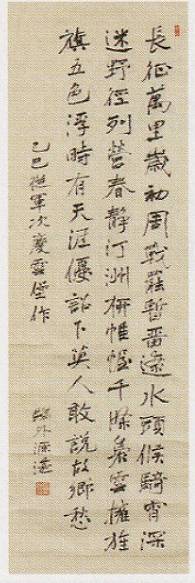 長征萬里歲初周戰罷暫留遼水頭候騎宵深
迷野徑列營春靜汀洲柳帷幄千條裊雲擁旌
旗五色浮時有天涯優詔下人敢說故鄉愁
乙巳從軍次慶雲堡作
鷗外源湛